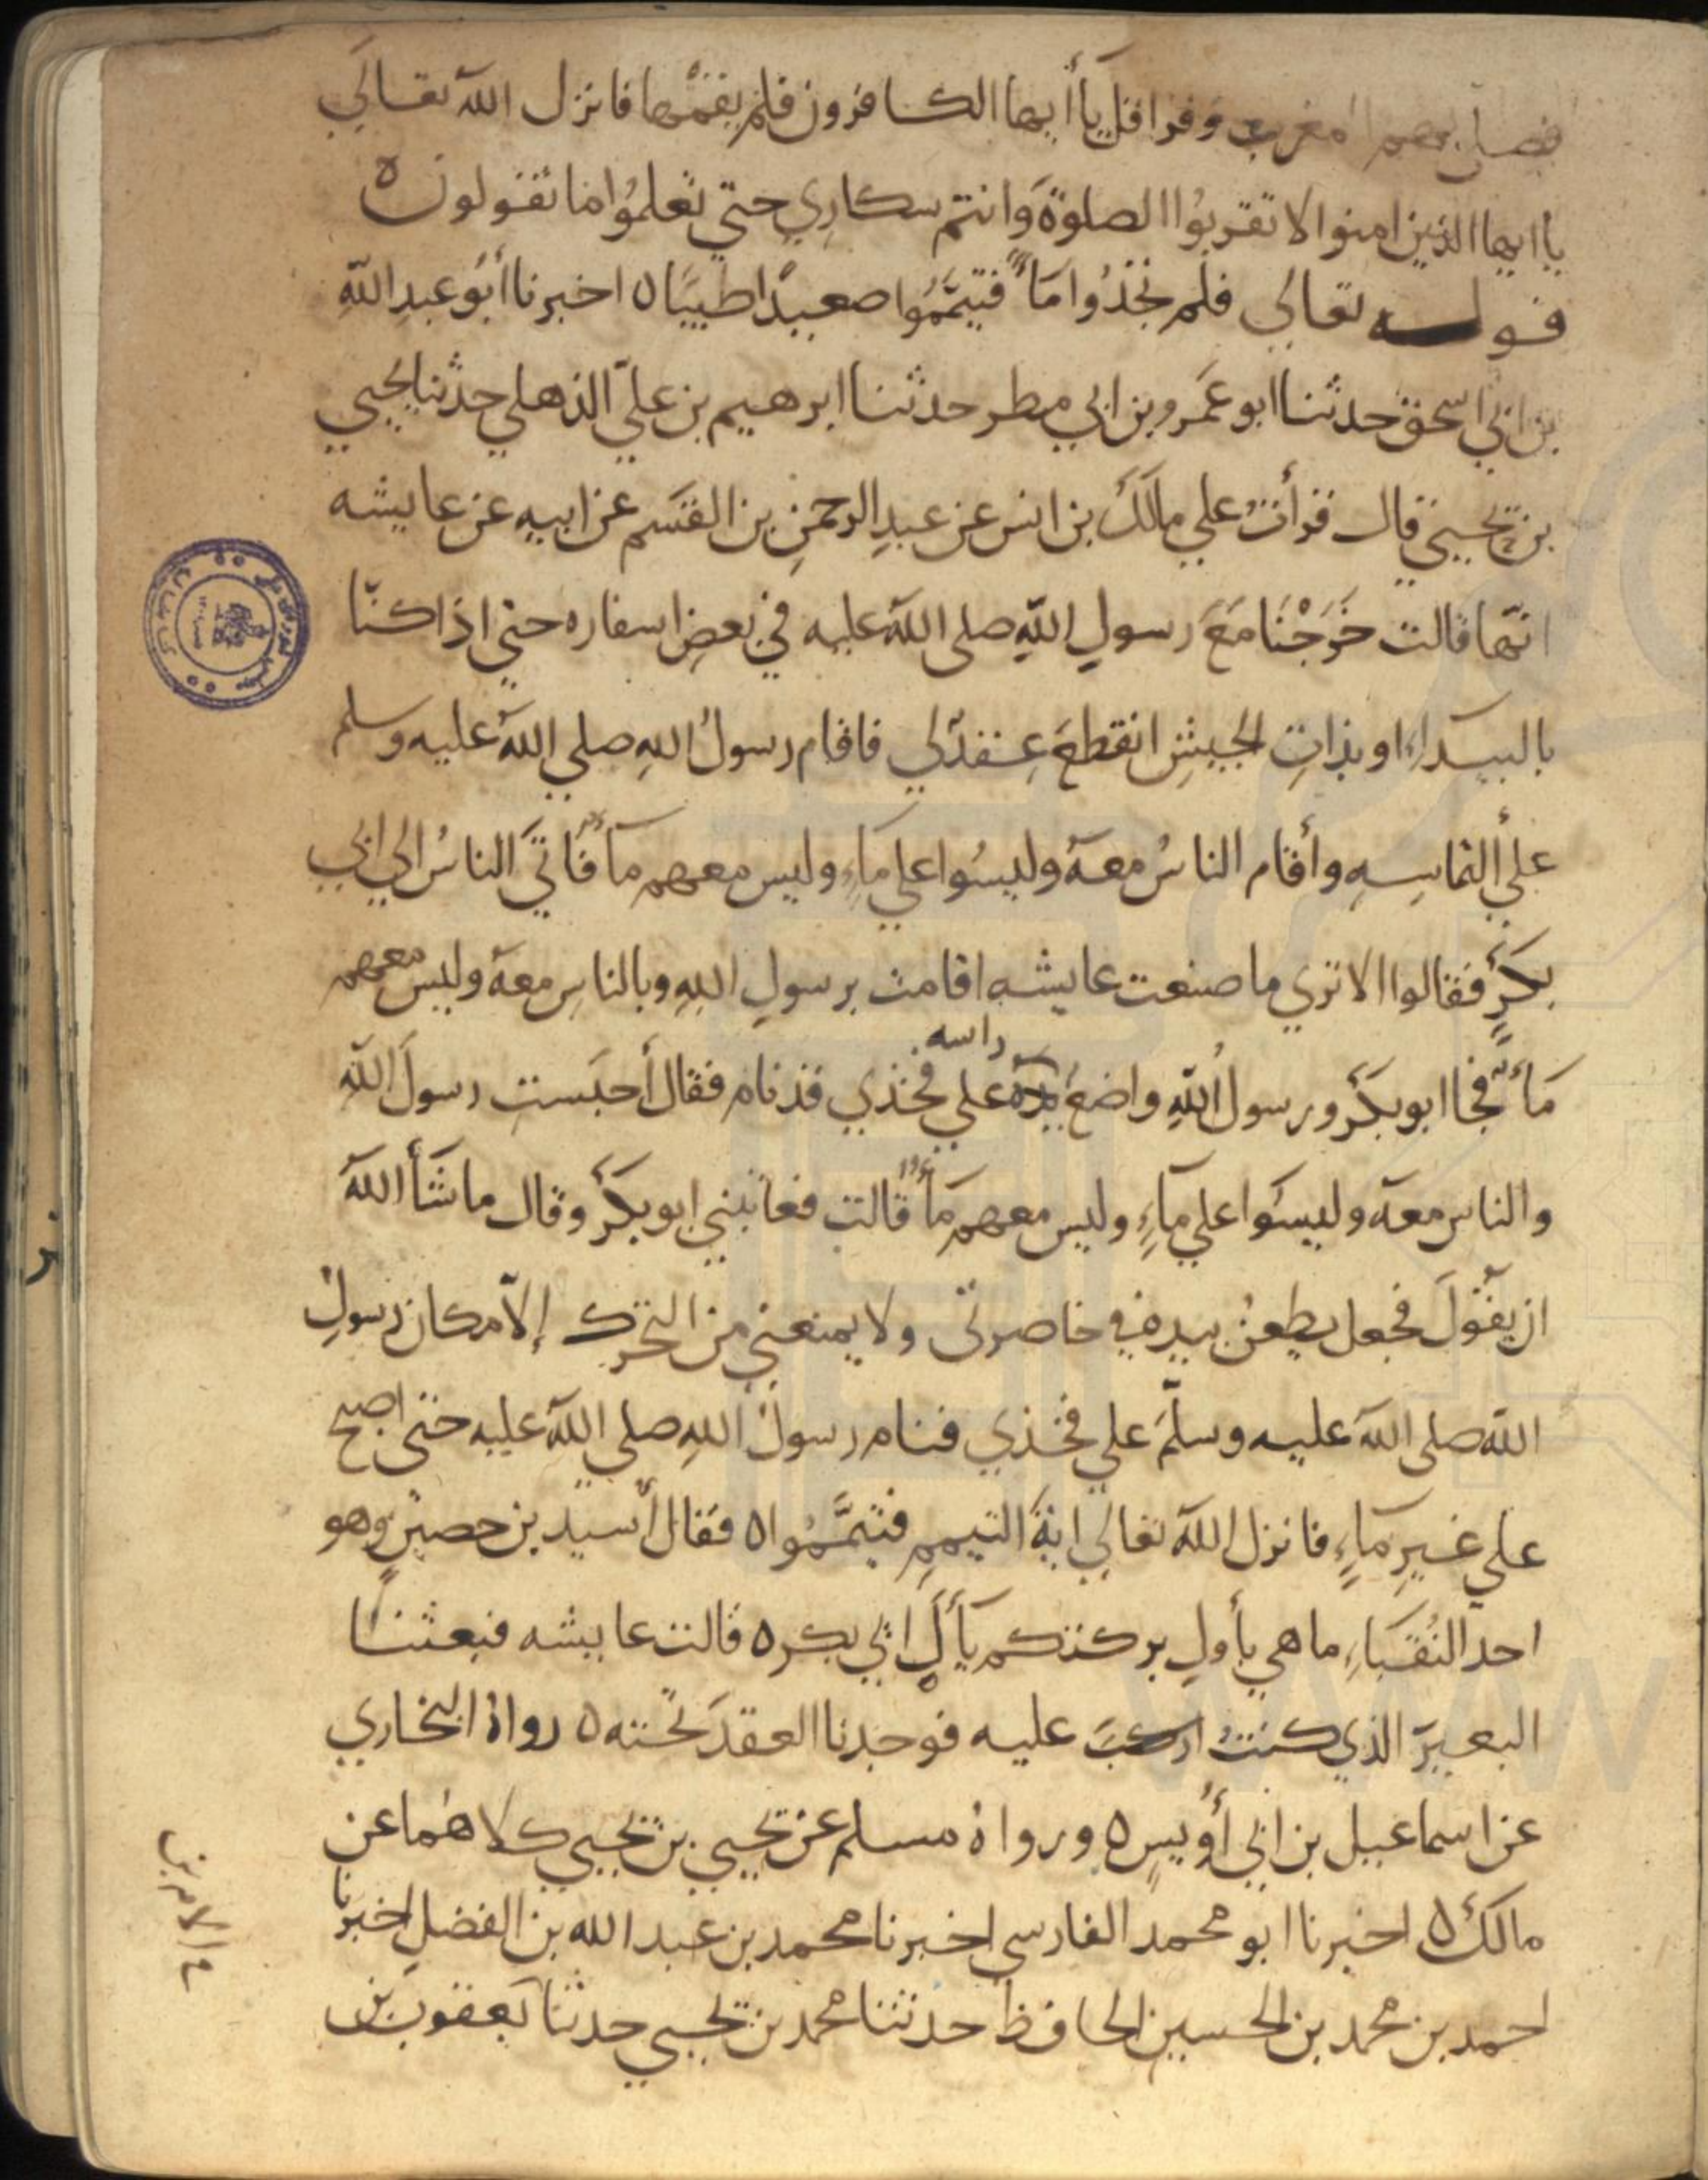 فصلى بهم المغرب وقرا قل يا أيها الكافرون فلم يقمها فانزل الله تعالى
يا ايها الذين امنوا لا تقربوا الصلوة وانتم سكاري حتي تعلموا ما تقولون ه
قوله تعالي فلم تجدوا مآء فتيمموا صعيدا طيبا ه اخبرنا أبو عبد الله
بن ابي اسحق حدثنا ابو عمرو بن ابي مطر حدثنا ابرهيم بن علي الذهلي حدثنا يحيي
بن يحيي قال قرأت علي مالك بن انس عن عبد الرحمن بن القسم عن ابيه عن عايشه
انها قالت خرجنا مع رسول الله صلى الله عليه في بعض اسفاره حتي اذا كنا
بالبيداء او بذات الجيش انقطع عقد لي فاقام رسول الله صلي الله عليه وسلم
علي التماسه وأقام الناس معه وليسوا علي ماء وليس معهم مآء فاتي الناس الي ابي
بكر فقالوا الا تري ما صنعت عايشه اقامت برسول الله وبالناس معه وليس معهم
مآء فجا ابو بكر ورسول الله واضع راسه علي فخذي قد نام فقال أحبست رسول الله
والناس معه وليسوا علي مآء وليس معهم مآء قالت فعاتبني ابو بكر وقال ما شأ الله
ان يقول فجعل يطعن بيده في خاصرتى ولا يمنعني من التحرك إلا مكان رسول
الله صلى الله عليه وسلم علي فخذي فنام رسول الله صلي الله عليه حتى اصبح
علي غير مآء فانزل الله تعالي اية التيمم فتيمموا ه فقال أسيد بن حصين وهو
احد النقباء ما هي بأول بركتكم يأل ابي بكر ه قالت عايشه فبعثنا
البعير الذي كنت اركب عليه فوجدنا العقد تحته ه رواه البخاري
عن اسماعيل بن ابي أويس ه ورواه مسلم عن يحيي بن يحيي كلاهما عن
مالك ه اخبرنا ابو محمد الفارسي اخبرنا محمد بن عبد الله بن الفضل اخبرنا
احمد بن محمد بن الحسين الحافظ حدثنا محمد بن يحيي حدثنا يعقوب بن